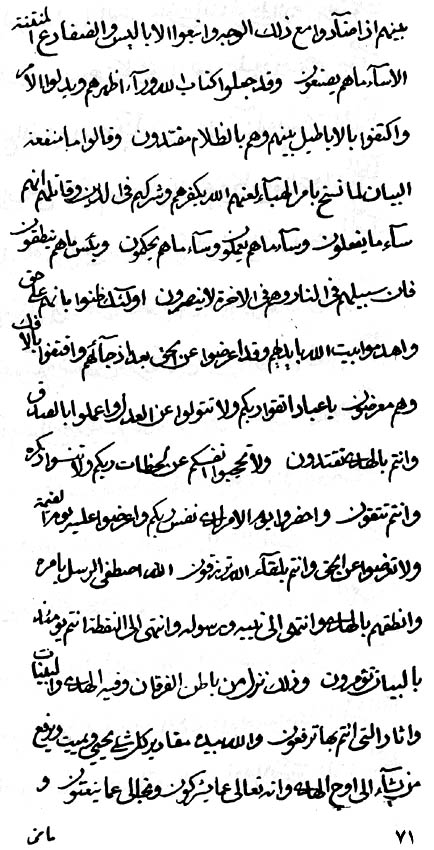 بينهم اذ امتآدوا مع ذلك الوجه واتبعوا الاباليس والضفادع المنقنقة
الاسآء ما هم يصنعون وقد جعلوا كتاب الله ورآء اظهرهم وبدلوا الامر
واكتفوا بالاباطيل بينهم وهم بالظلام مقتدون وقالوا ما منفعة
البيان لما نسخ بامر الهبآء لعنهم الله بكفرهم وشركهم في الدين وقاتلهم انهم
سآء ما يفعلون وسآء ما هم يعملون وسآء ما هم يحكمون وبئس ما هم ينطقون
فان سبيلهم في النار وهم في الاخرة لا ينصرون اولئك ظنوا بانهم على حق
واهدموا بيت الله بايديهم وقد اعرضوا عن الحق بعد اذ جآئهم واقتفوا بالافك
وهم معرضون يا عباد اتقوا ربكم ولا تتولوا عن العدل واعملوا بالصدق
وانتم بالهدى تقتدون ولا تحجبوا انفسكم عن لحظات ربكم ولا تنسوا ذكره
وانتم تتقون واحضروا يوم الامر لدى نفس ربكم واعرضوا عليه يوم القيمة
ولا تعرضوا عن الحق وانتم بلقآء الله ترزقون الله اصطفى الرسل بامره
وانطقهم بالهدى وانتهى الى نبيه ورسوله وانتهى الى النقطة انتم يومئذ
بالبيان تؤمرون وذلك نزل من باطن الفرقان وفيه الهدى والبينات
واثار التي انتم بها ترفعون والله بيده مقادير كل شئ يحيي ويميت ويرفع
من يشآء الى اوج الهدى وانه تعالى عما يشركون وتجلل عما ينعتون و
٧١
مانى